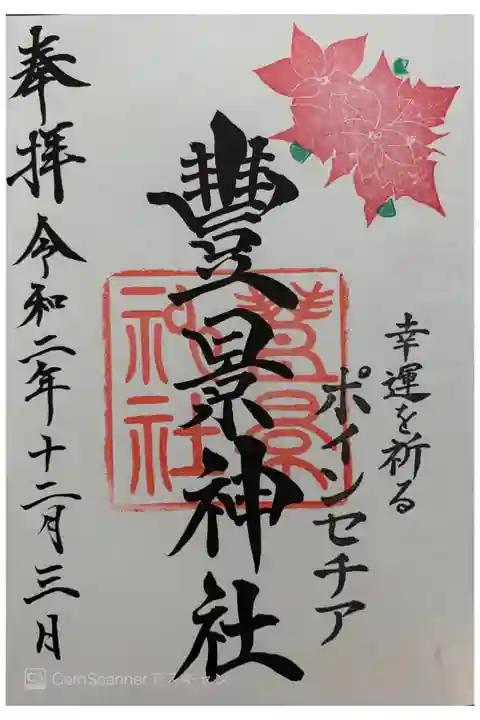 幸運を祈る
ポインセチア
豐景神社
豐景
神社
奉拝 令和二年十二月三日
CamScanner でスキャン